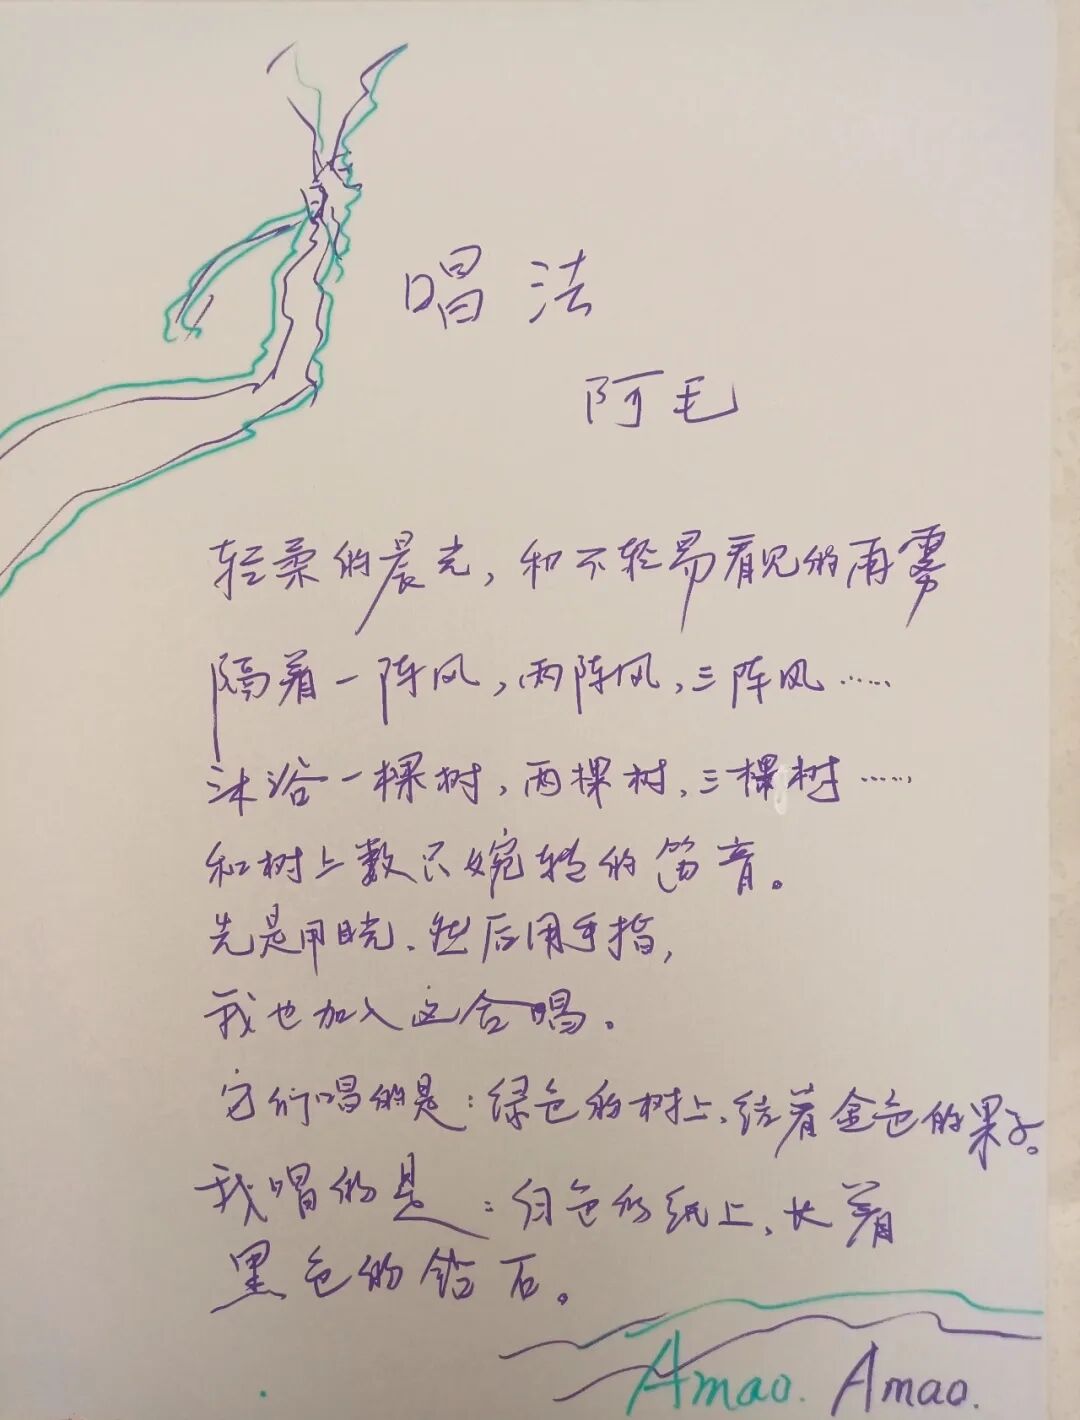 唱法
阿毛
轻柔的晨光，和不轻易看见的雨雾
隔着一阵风，两阵风，三阵风……
沐浴一棵树，两棵树，三棵树……
和树上数只婉转的笛音。
先是用眼，然后用手指，
我也加入这合唱。
它们唱的是：绿色的树上，结着金色的果子。
我唱的是：白色的纸上，长着
黑色的钻石。
Amao. Amao.